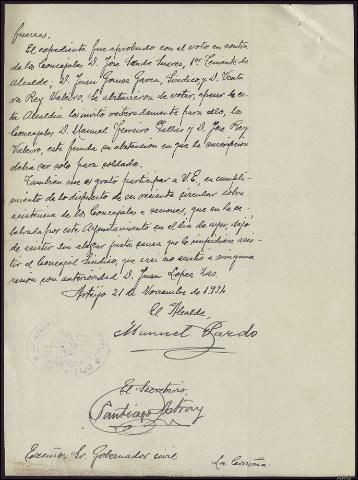 fuerzas.
El expediente fue aprobado con el voto en contra
de los Concejales D. José Varela Suarez, 1er Teniente de
Alcalde; D. Juan Gomez Garea, Sindico y D. Ventu
ra Rey Valeiro, se abstuvieron de votar, apesar de es-
ta Alcaldia les invitó reiteradamente para ello, los
Concejales D. Manuel Ferreiro Pallas y D. Jose Rey
Valeiro, este funda su abstencion en que la suscripcion
debia ser solo para soldados.
Tambien me es grato participar a V.E., en cumpli-
miento de lo dispuesto de en reciente circular sobre
asistencia de los Concejales a sesiones, que en la ce-
lebrada por este Ayuntamiento en el dia de ayer, dejo
de asistir sin alegar justa causa que le impidiese asis-
tir el Concejal Sindico, que casi no asistió a ninguna
sesion con anterioridad D. Juan Lopez
Arteijo 21 de Noviembre de 1934
El Alcalde,
Manuel Pardo
El Secretario,
Santiago Astray
Excmo. Sr. Gobernador civil
La Coruña